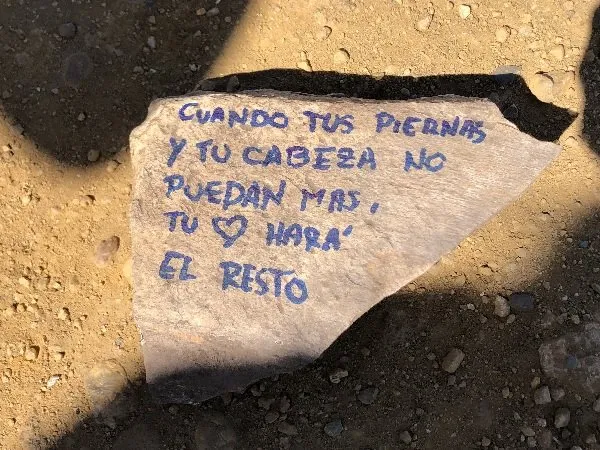 CUANDO TUS PIERNAS
Y TU CABEZA NO
PUEDAN MAS,
TU ♡ HARÁ
EL RESTO